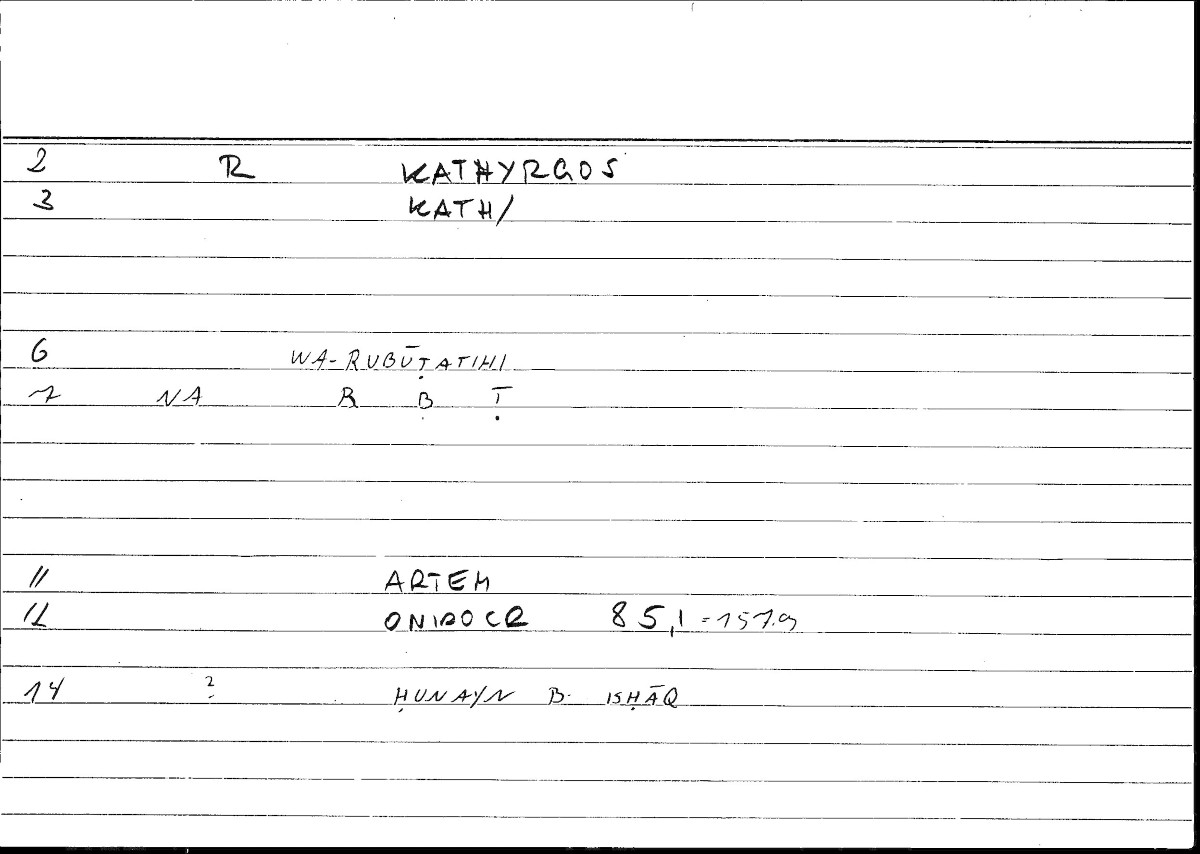 2 R KATHYRGOS
3 KATH/
6 WA-RUBŪṬATIHI
7 NA R B Ṭ
11 ARTEM
12 ONIROCR 85,1 = 157.9
14 ? ḤUNAYN B. ISḤĀQ